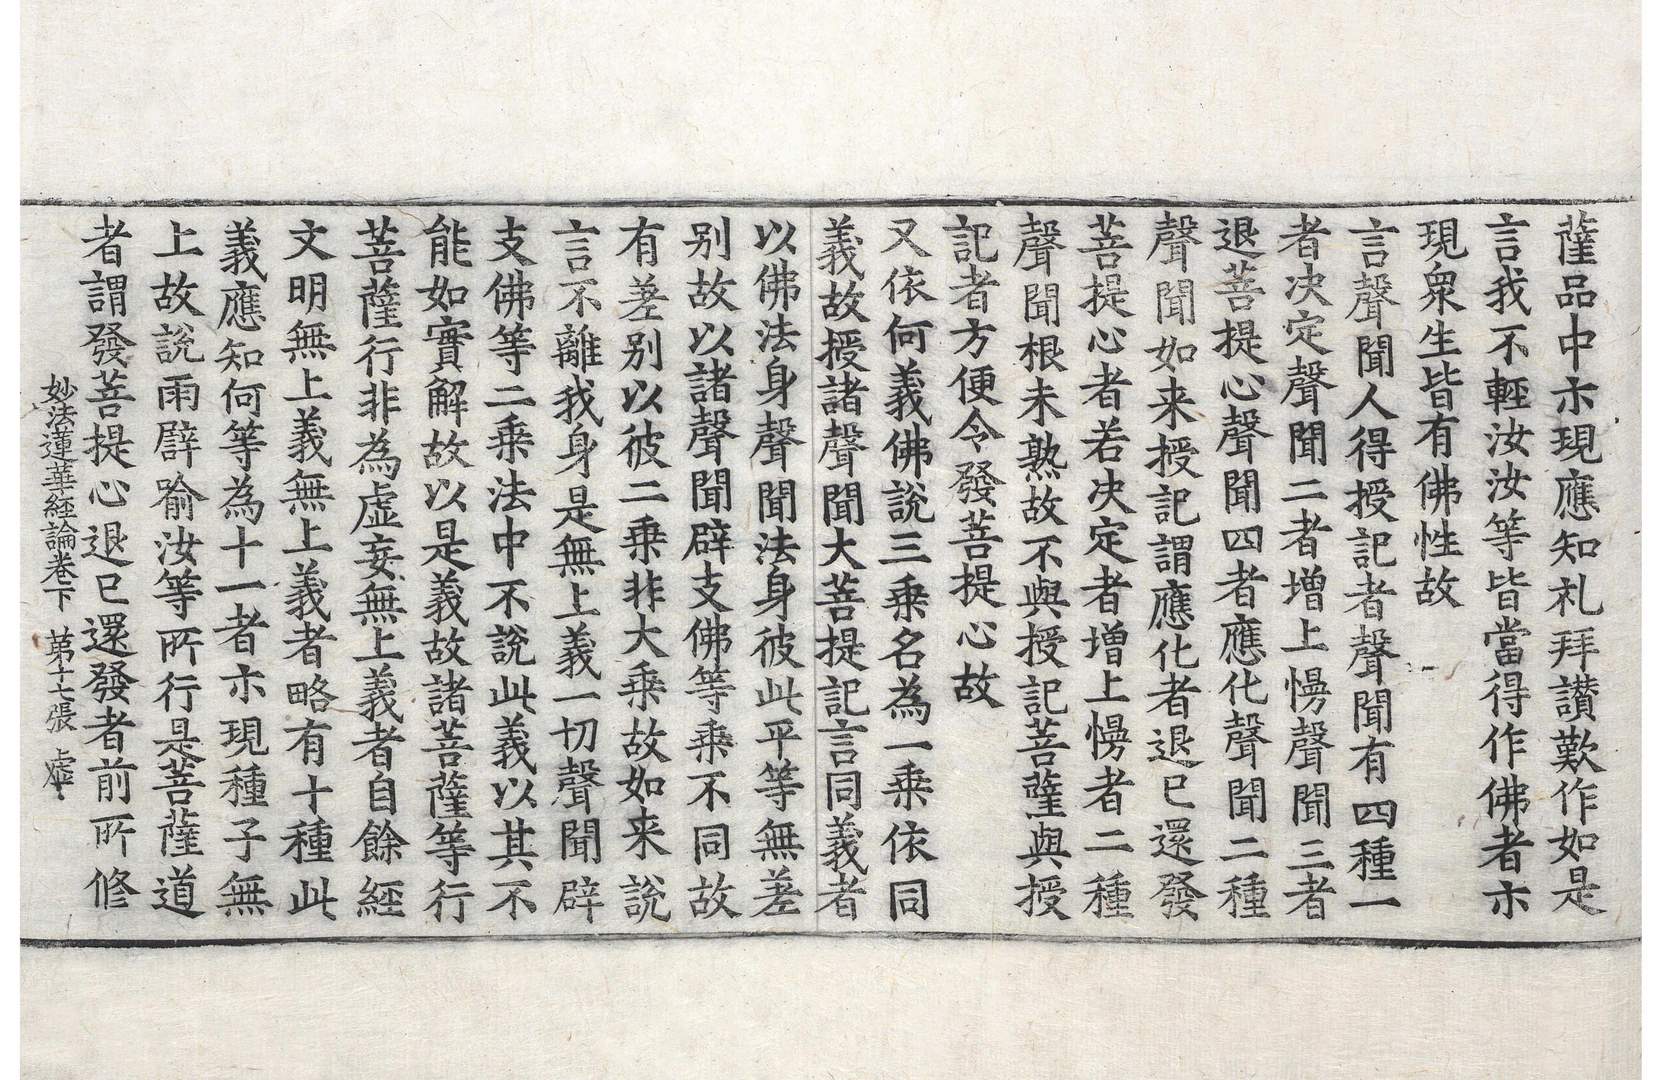 薩品中示現應知礼拜讃歎作如是
言我不輕汝汝等皆當得作佛者示
現衆生皆有佛性故
言聲聞人得授記者聲聞有四種一
者决定聲聞二者增上慢聲聞三者
退菩提心聲聞四者應化聲聞二種
聲聞如来授記謂應化者退已還發
菩提心者若决定者增上慢者二種
聲聞根未熟故不與授記菩薩與授
記者方便令發菩提心故
又依何義佛說三乗名為一乗依同
義故授諸聲聞大菩提記言同義者
以佛法身聲聞法身彼此平等無差
别故以諸聲聞辟支佛等乗不同故
有差别以彼二乗非大乗故如来說
言不離我身是無上義一切聲聞辟
支佛等二乗法中不說此義以其不
能如實解故以是義故諸菩薩等行
菩薩行非為虚妄無上義者自餘經
文明無上義無上義者略有十種此
義應知何等為十一者示現種子無
上故說雨辟喻汝等所行是菩薩道
者謂發菩提心退已還發者前所修
妙法蓮華經論卷下 第十七張 虚